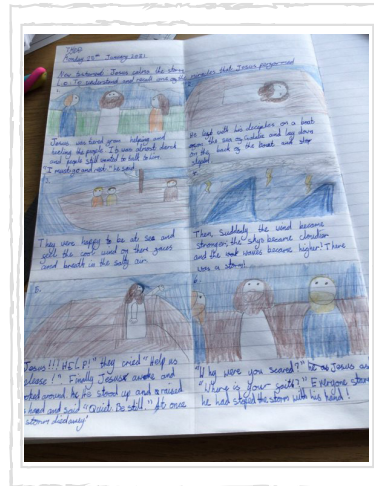 Monday 25th January 2021
New testament Jesus calms the storm
L.O. To understand and recall one of the miracles that Jesus performed
1.
Jesus was tired from helping and
healing the people. It was almost dark
and people still wanted to talk to him.
"I must go and rest." he said
2.
He left with his disciples on a boat
across the sea of Galilee and lay down
on the back of the boat and
3.
They were happy to be at sea and
feel the cool wind on there faces
and breath in the salty air.
4.
Then, Suddenly the wind became
stronger, the skys became cloudier
and the waves became higher! There
was a storm!
5.
Jesus!!! HELP!" they cried "Help us
please!" Finally Jesus awoke and
looked around. he stood up and raised
hand and said "Quiet. Be still." At once
storm died away
6.
"Why were you scared?" Jesus
"Where is your faith?" Everyone
he had stoped the storm with his hand!